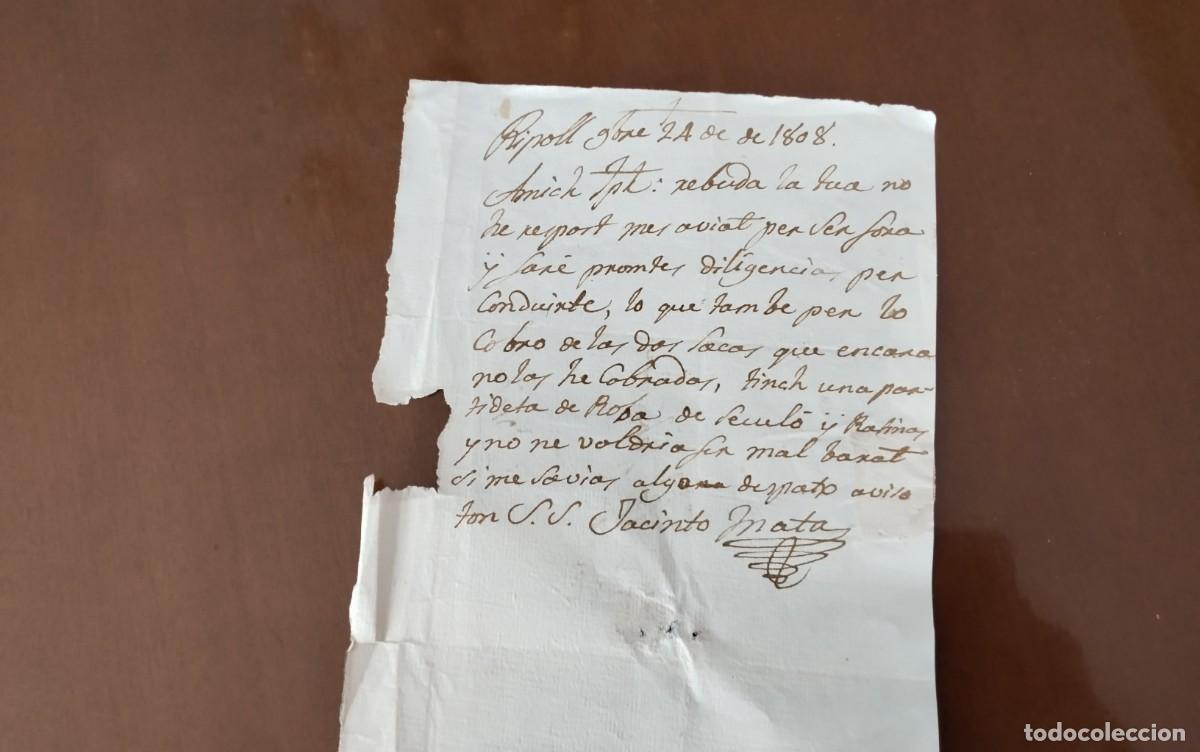 Ripoll 9bre 24 de de 1808.
Amich Jph: rebuda la tua no
he respost mes aviat per ser fora
y faré promtes diligencias per
Conduirte, lo que tambe per lo
Cobro de las dos sacas que encara
no las he Cobradas, tinch una par-
tideta de Roba de y
y no ne voldria ser mal barat
si me savias algun despatx avisa
ton S. S. Jacinto Mata
todocoleccion